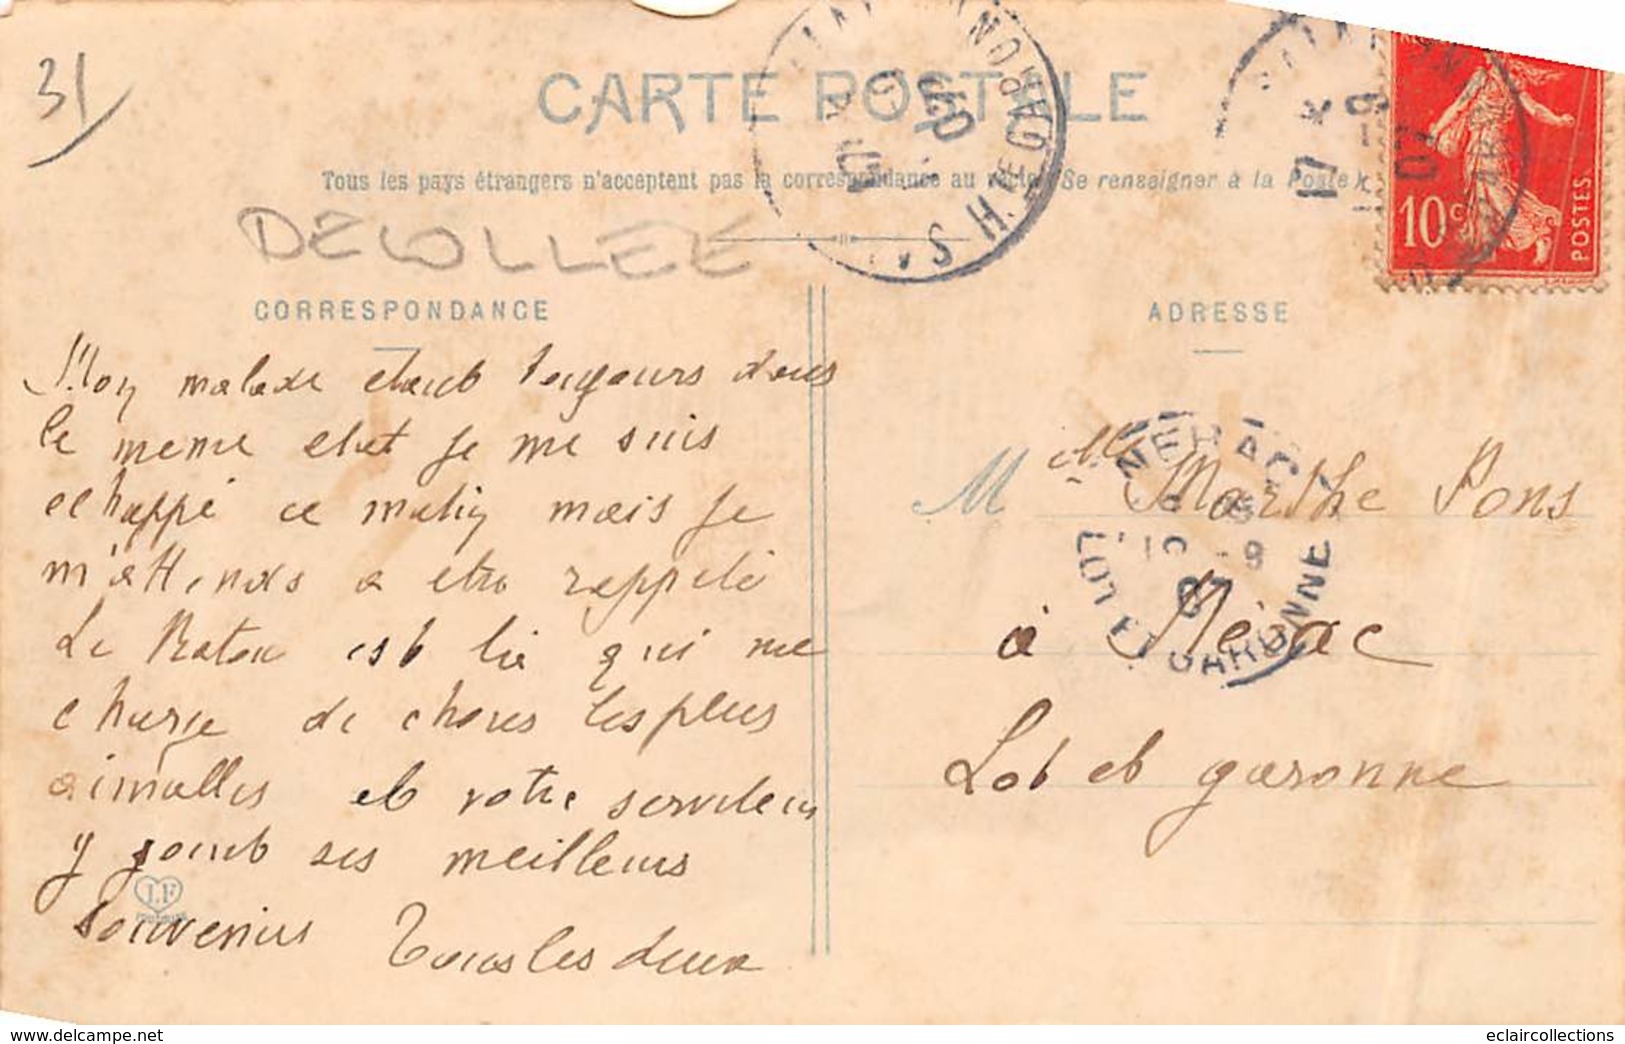 31
CARTE POSTALE
Tous les pays étrangers n'acceptent pas la correspondance au recto (Se renseigner à la Poste)
DÉCOLLÉE
HTE GARONNE
17 9 07
10c POSTES
CORRESPONDANCE
ADRESSE
Mon malade etant toujours dans
le meme etat je me suis
echappé ce matin mais je
m'attends a etre rappelé
Le Raton est la qui me
charge de choses les plus
aimables et votre serviteur
y joint ses meilleurs
souvenirs Tous les deux
I.F
M Mlle Marthe Pons
à Nérac
Lot et garonne
NERAC
LOT ET GARONNE
eclaircollections